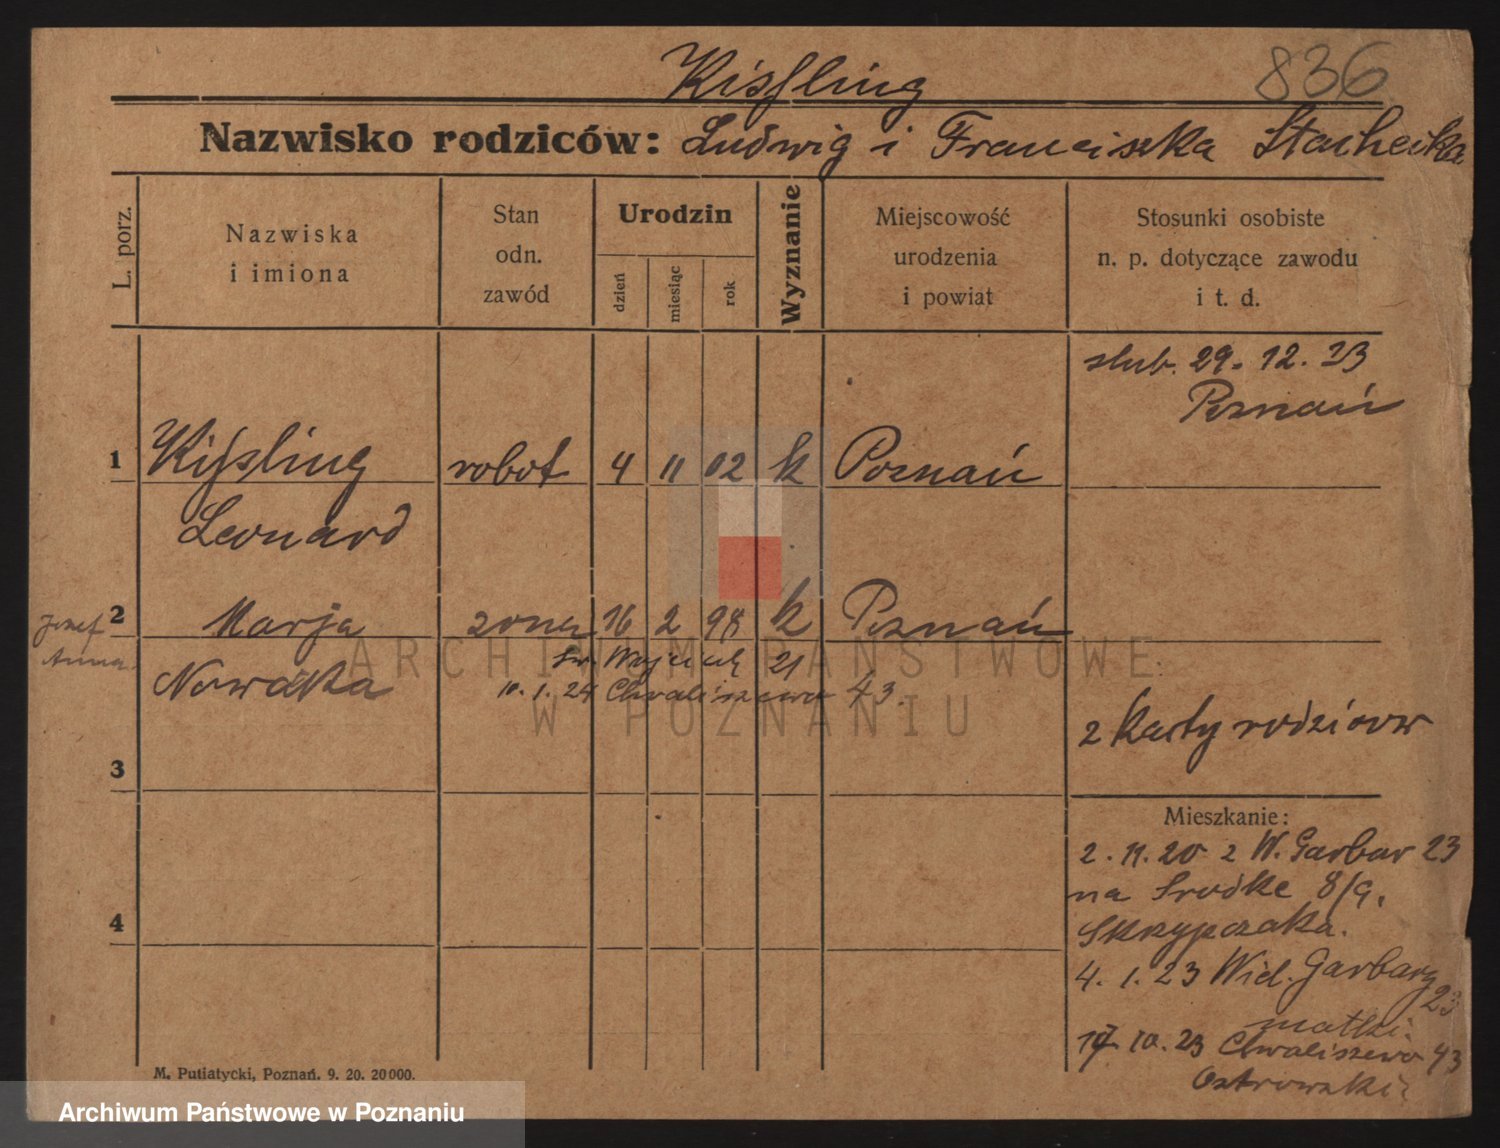 Kissling 836
Nazwisko rodziców: Ludwig i Franciszka Stachecka
L. porz.
Nazwiska
i imiona
Stan
odn.
zawód
Urodzin
dzień
miesiąc
rok
Wyznanie
Miejscowość
urodzenia
i powiat
Stosunki osobiste
n. p. dotyczące zawodu
i t. d.
slub. 29. 12. 23
Poznań
1 Kissling robot 4 11 02 k Poznań
Leonard
2 Marja zona 16 2 98 k Poznań
Józef
Anna
Nowacka
św. Wojciech 21
10. 1. 24 Chwaliszewo 43.
z karty rodziców
3
Mieszkanie:
2. 11. 20 z W. Garbar 23
na Srodke 8/9.
Skrzypczaka.
4. 1. 23 Wiel. Garbary
23
matki.
17. 10. 23 Chwaliszewo 43
Ostrowski
4
M. Putiatycki, Poznań. 9. 20. 20000.
ARCHIWUM PAŃSTWOWE
W POZNANIU
Archiwum Państwowe w Poznaniu